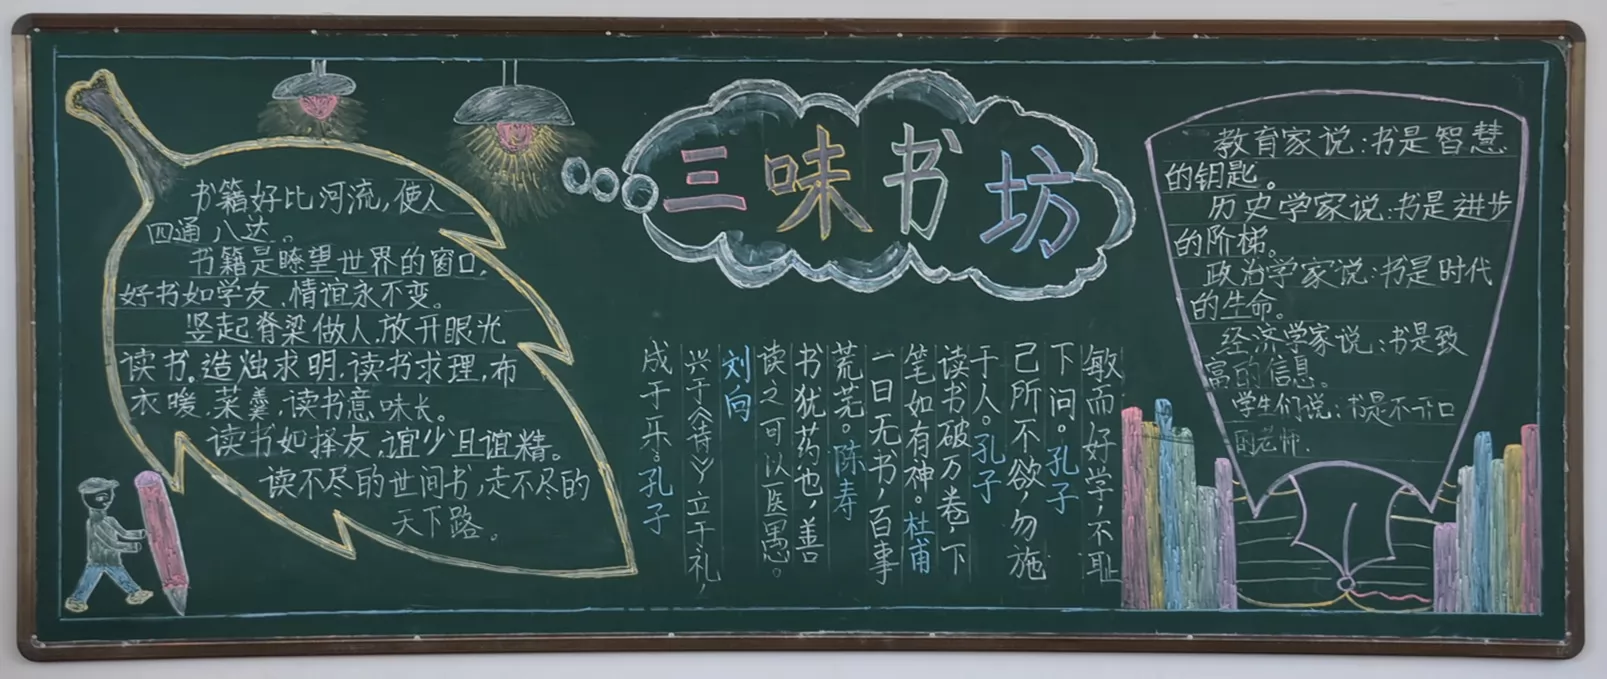 三味书坊
书籍好比河流,使人
四通八达。
书籍是瞭望世界的窗口,
好书如学友,情谊永不变。
竖起脊梁做人,放开眼光
读书。造烛求明,读书求理,布
衣暖,菜羹,读书意味长。
读书如择友,谊少且谊精。
读不尽的世间书,走不尽的
天下路。
敏而好学,不耻
下问。孔子
己所不欲,勿施
于人。孔子
读书破万卷,下
笔如有神。杜甫
一日无书,百事
荒芜。陈寿
书犹药也,善
读之可以医愚。
刘向
兴于《诗》,立于礼,
成于乐。孔子
教育家说:书是智慧
的钥匙。
历史学家说:书是进步
的阶梯。
政治学家说:书是时代
的生命。
经济学家说:书是致
富的信息。
学生们说:书是不开口
的老师.